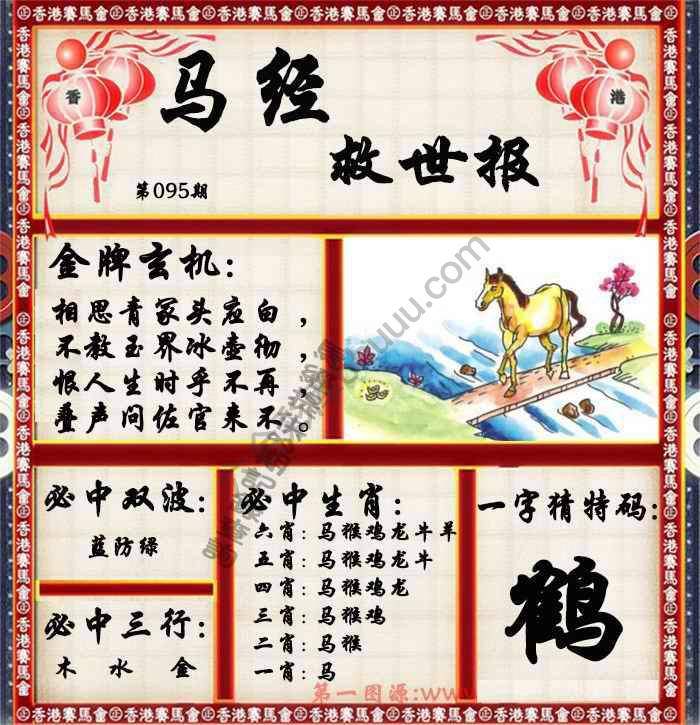 ㊣香港賽馬會㊣香港賽馬會㊣香港賽馬會㊣香港賽馬會㊣香港賽馬會㊣香港賽馬會㊣香港賽馬會㊣
香
港
马经
救世报
第095期
金牌玄机：
相思青冢头应白，
不教玉界冰壶彻，
恨人生时乎不再，
叠声问佐官来不。
必中双波：
蓝防绿
必中三行：
木 水 金
必中生肖：
六肖：马猴鸡龙牛羊
五肖：马猴鸡龙牛
四肖：马猴鸡龙
三肖：马猴鸡
二肖：马猴
一肖：马
一字猜特码：
鹤
第一图源:www